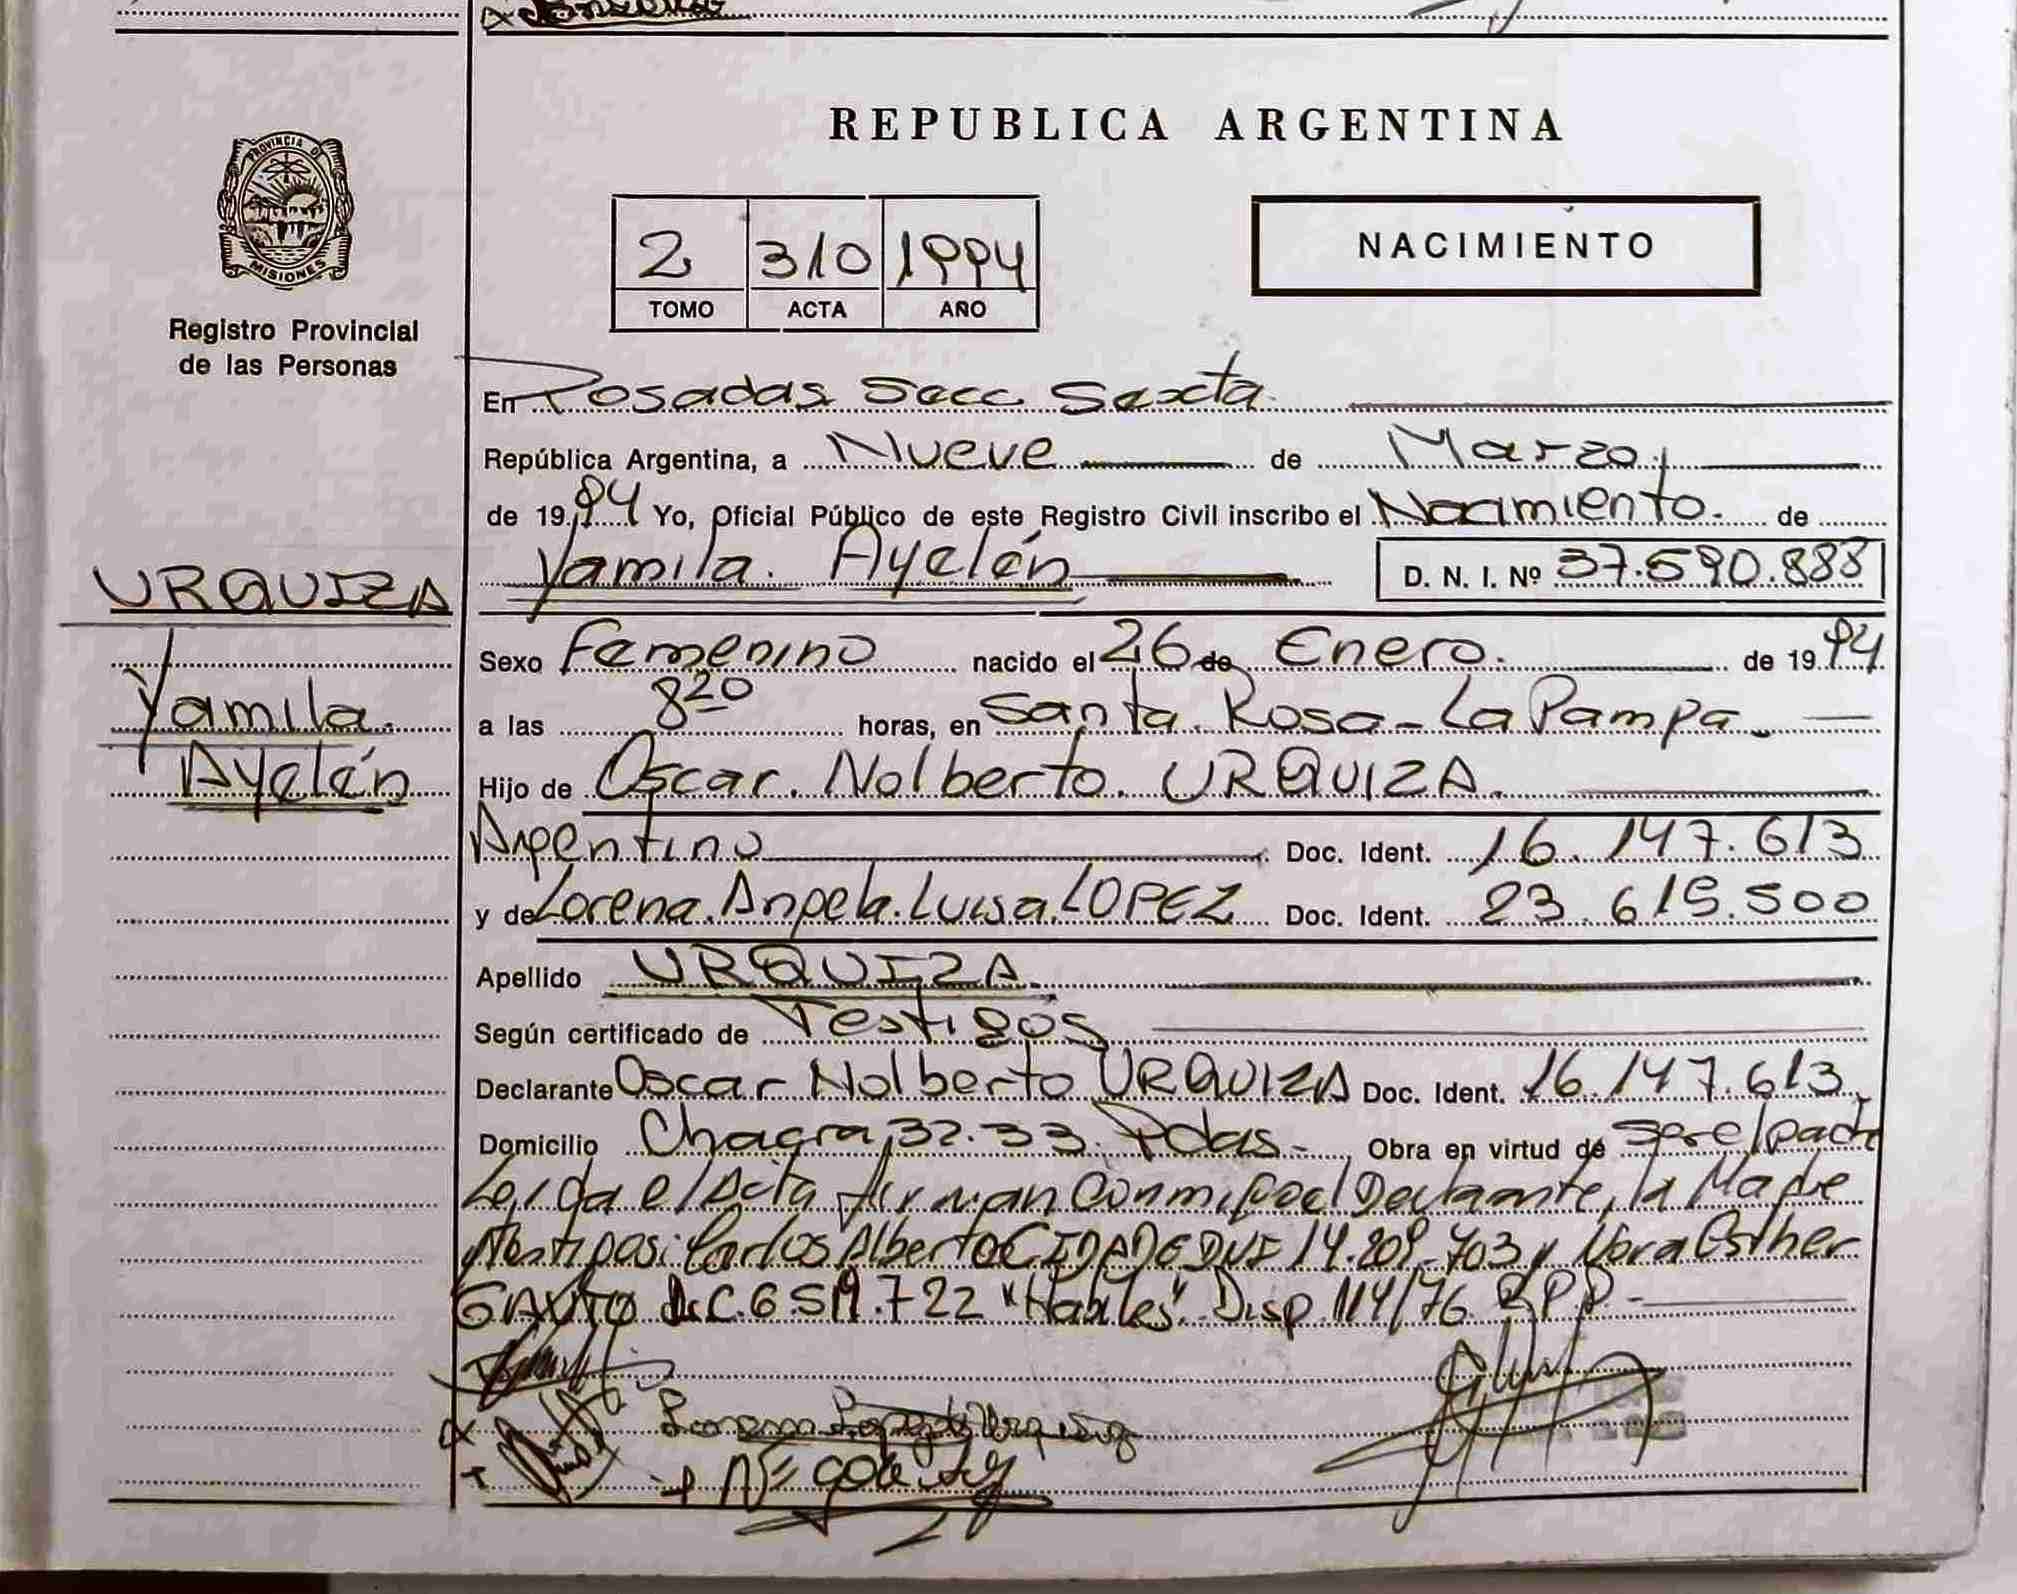 REPUBLICA ARGENTINA
PROVINCIA D
MISIONES
Registro Provincial
de las Personas
2 310 1994
TOMO ACTA AÑO
NACIMIENTO
En Posadas Secc. Sexta
República Argentina, a Nueve de Marzo
de 1994 Yo, Oficial Público de este Registro Civil inscribo el Nacimiento de
Yamila Ayelén D. N. I. Nº 37.590.888
URQUIZA
Yamila
Ayelén
Sexo Femenino nacido el 26 de Enero de 1994
a las 8 20 horas, en Santa Rosa - La Pampa
Hijo de Oscar Nolberto URQUIZA
Argentino Doc. Ident. 16.147.613
y de Lorena Angela Luisa LOPEZ Doc. Ident. 23.615.500
Apellido URQUIZA
Según certificado de Testigos
Declarante Oscar Nolberto URQUIZA Doc. Ident. 16.147.613
Domicilio Chacra 32.33. Pdas. Obra en virtud de ser el padre
Leída el Acta firman conmigo el Declarante, la Madre
y testigos: Carlos Alberto CIDADE DNI 14.209.703 y Nora Esther
GAUTO L.C. 6.519.722 "Habiles" Disp. 114/76 R.P.P.